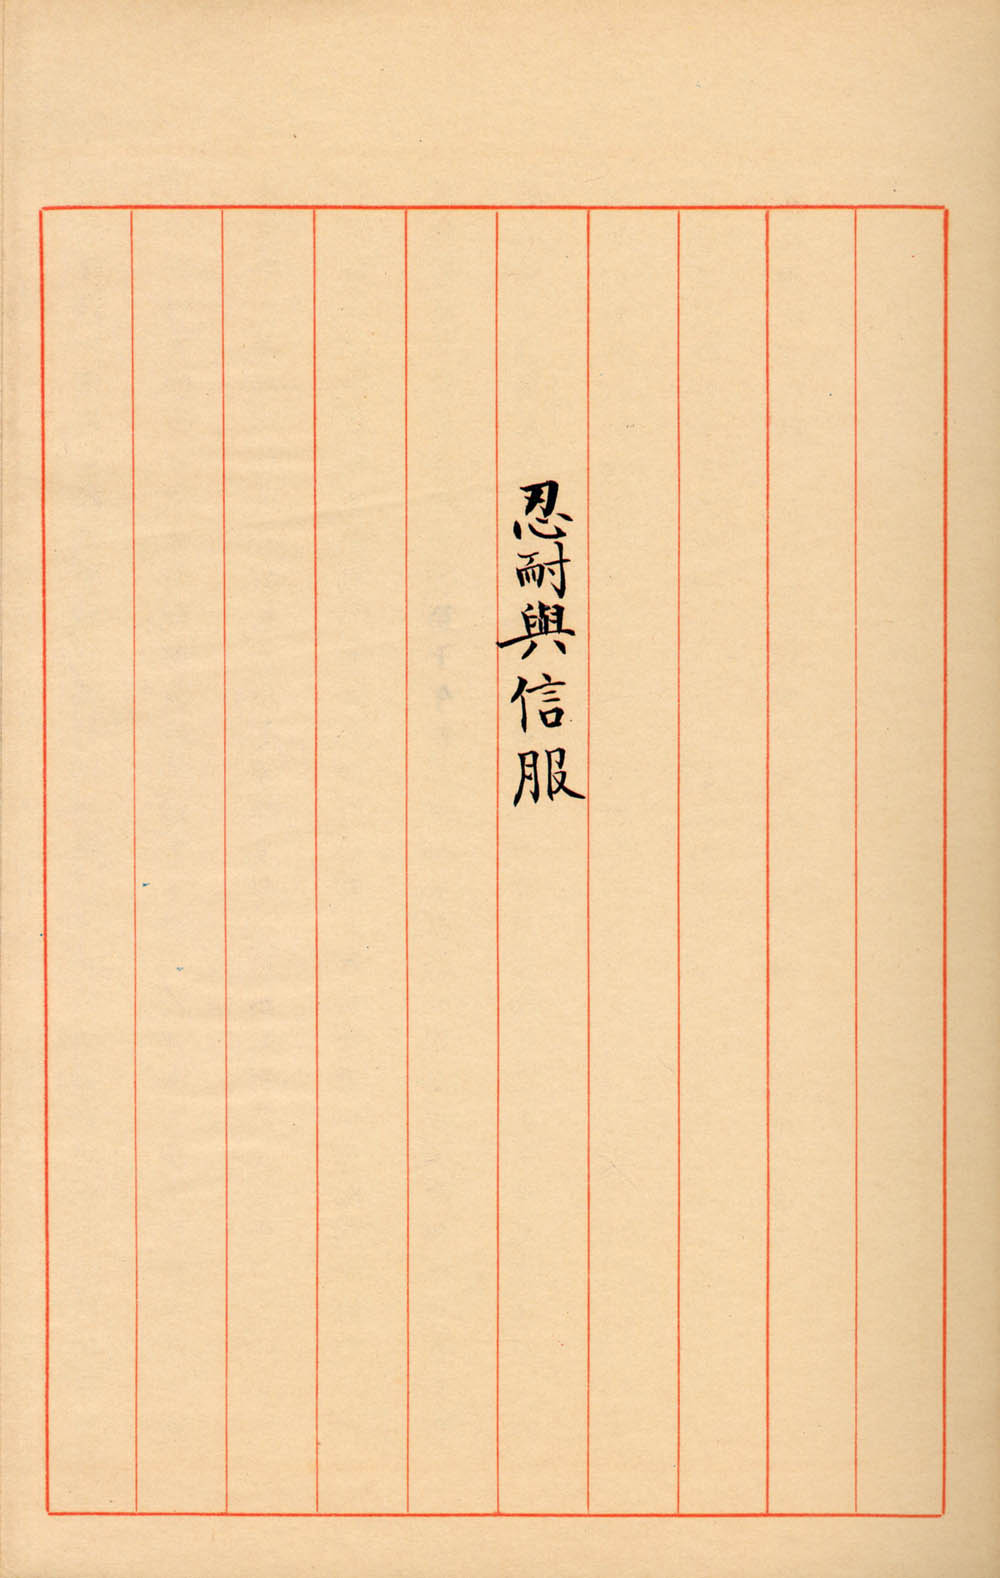 忍耐與信服